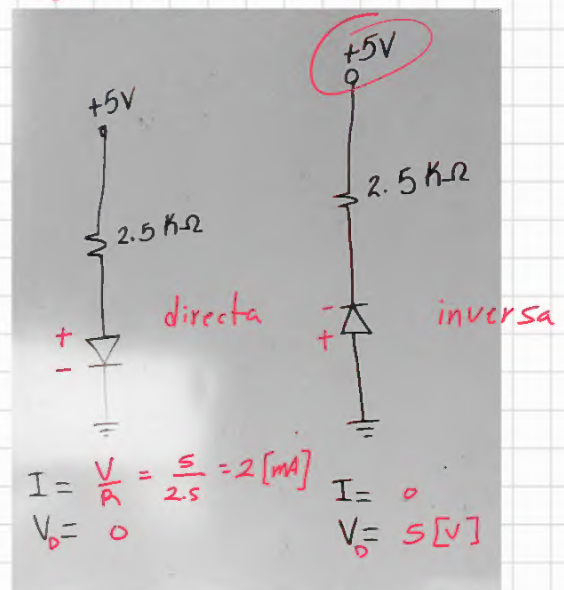 +5V
2.5 KΩ
+
-
directa
I = V/R = 5/2.5 = 2 [mA]
V_D = 0
+5V
2.5 KΩ
-
+
inversa
I = 0
V_D = 5 [V]